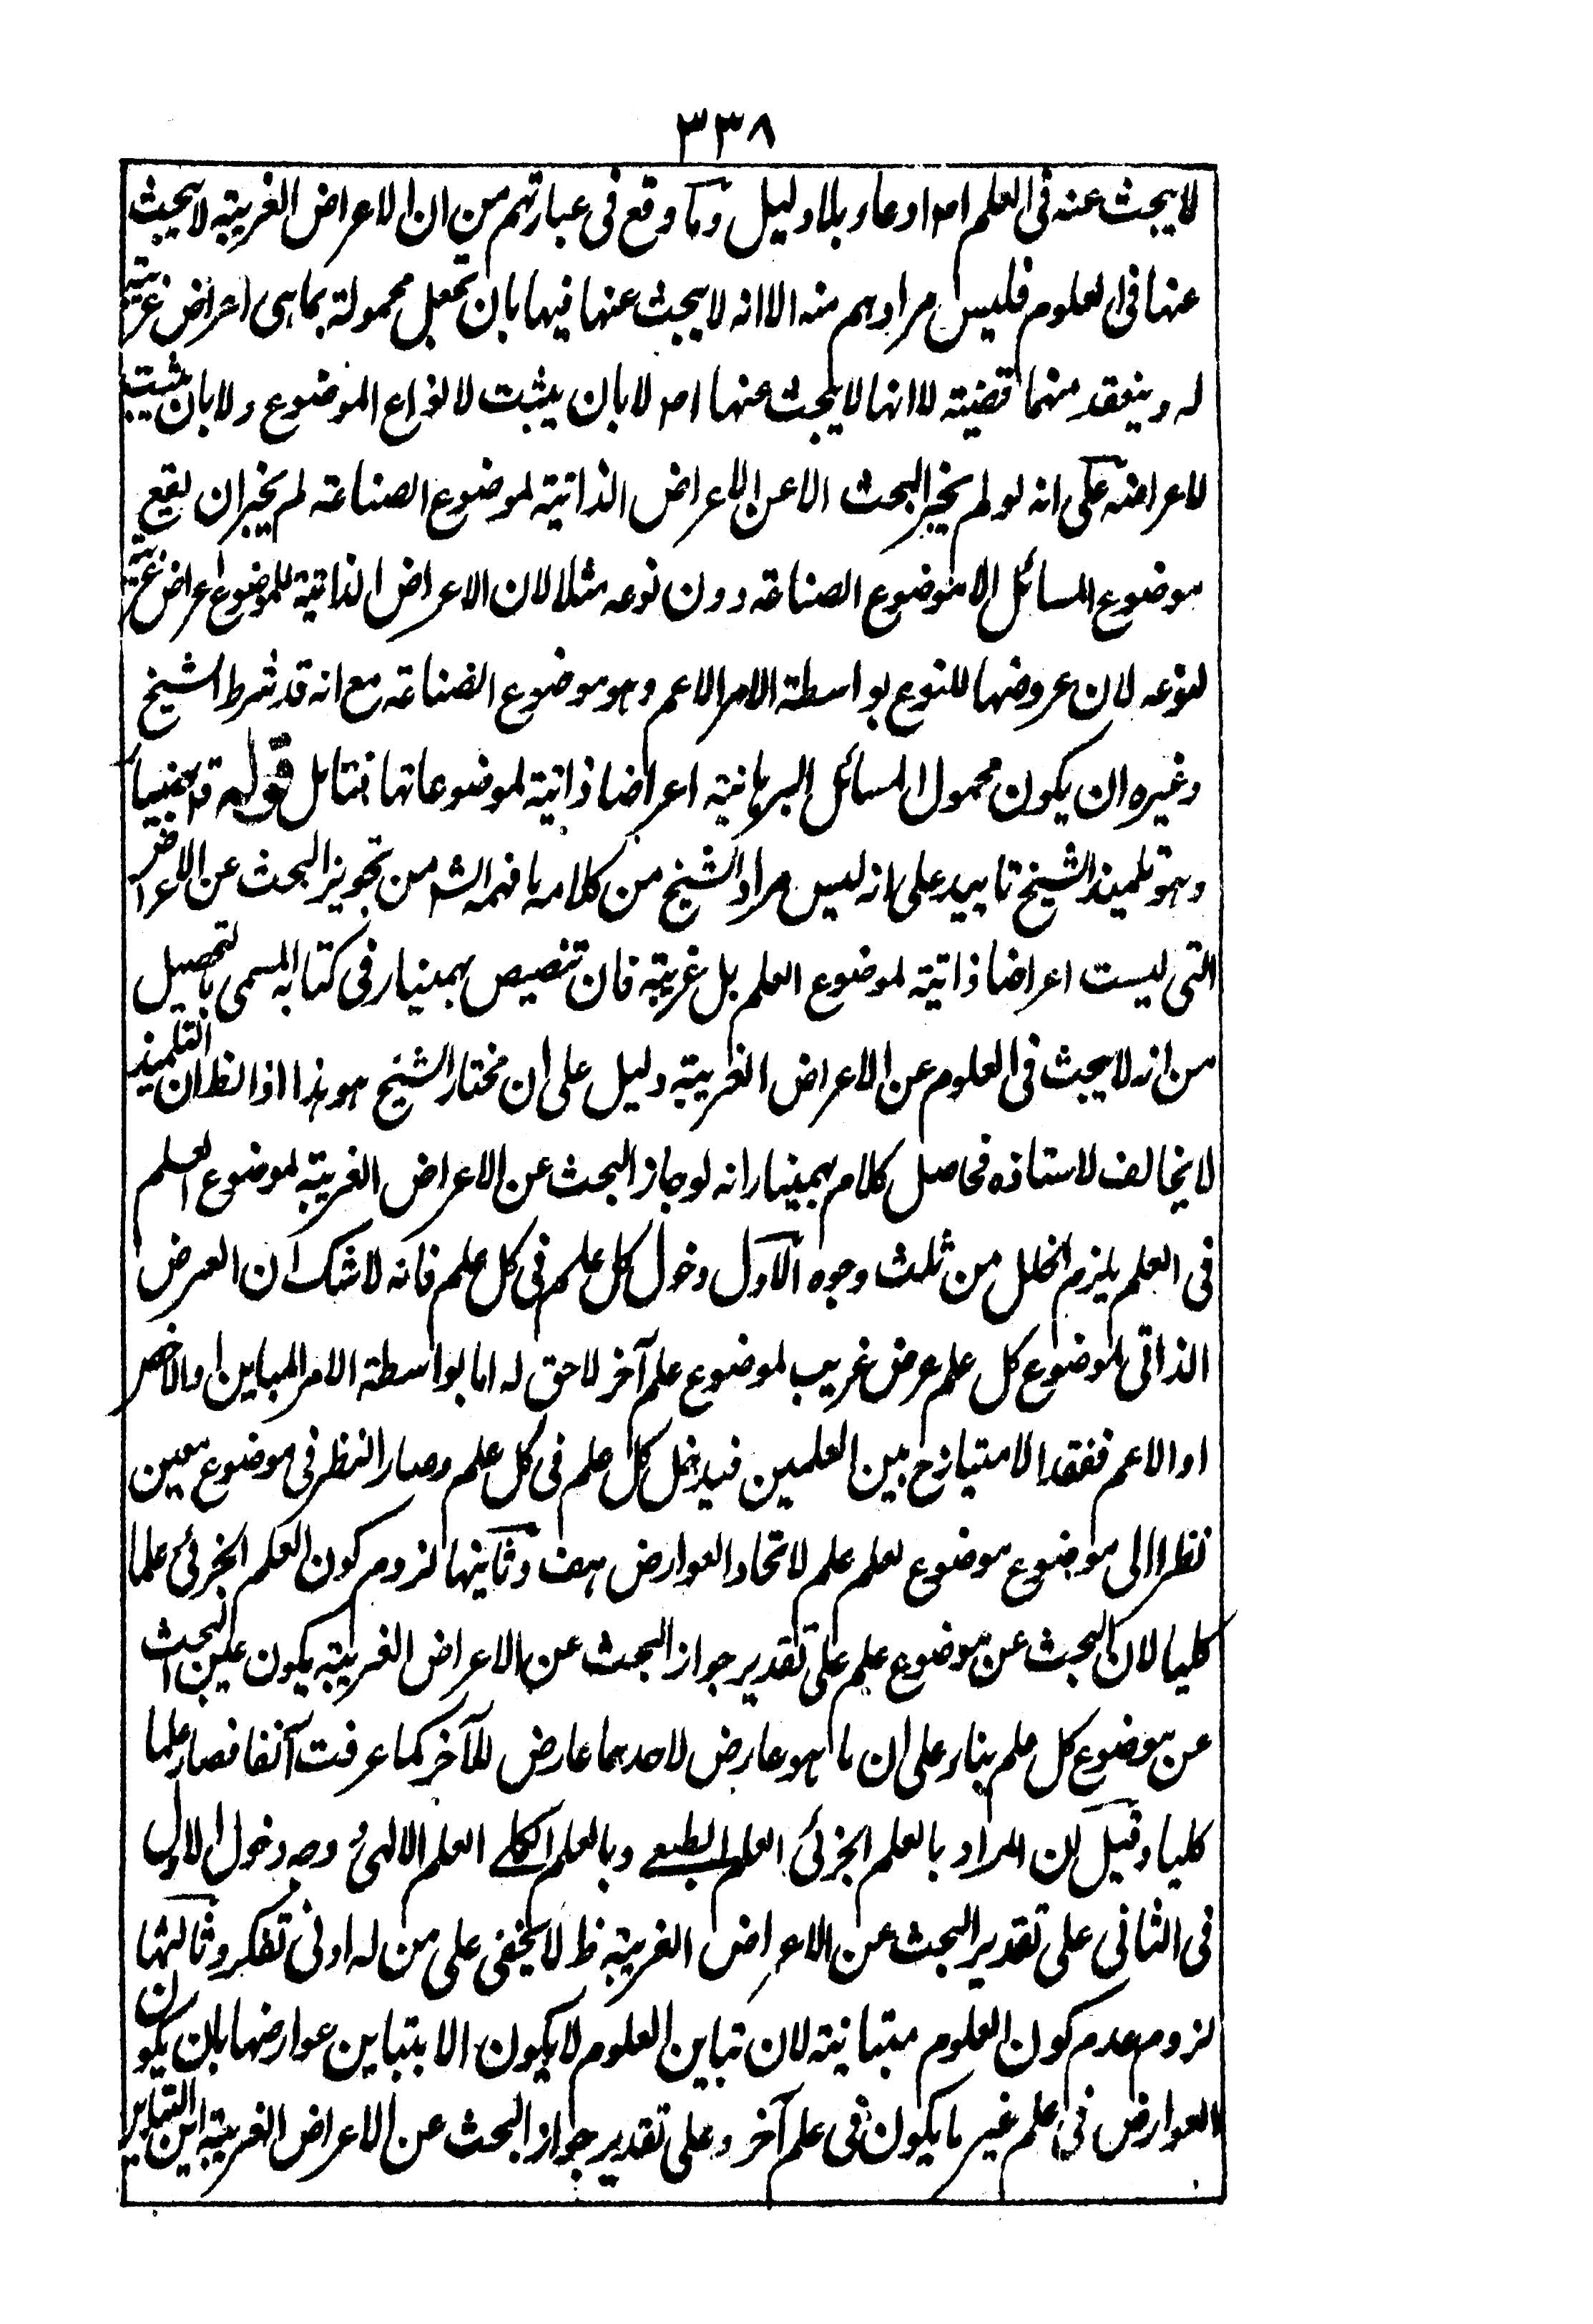 ٣٣٨
لا يبحث عنه فى العلم اصلا ادعاء بلا دليل وما وقع فى عبارتهم من ان الاعراض الغريبة لا يبحث
عنها فى العلوم فليس مرادهم منه الا انه لا يبحث عنها فيها بان تجعل محمولة بما هى اعراض غريبة
له وينعقد منهما قضية لا انها لا يبحث عنها اصلا لا بان يثبت لانواع الموضوع ولا بان يثبت
لاعراضه على انه لو لم يجز البحث الا عن الاعراض الذاتية لموضوع الصناعة لم يجز ان يقع
موضوع المسائل الا موضوع الصناعة دون نوعه مثلا لان الاعراض الذاتية للموضوع اعراض غريبة
لنوعه لان عروضها للنوع بواسطة الامر الاعم وهو موضوع الصناعة مع انه قد شرط الشيخ
وغيره ان يكون محمول المسائل البرهانية اعراضا ذاتية لموضوعاتها فتامل قوله قد بهمنيار
وهو تلميذ الشيخ تاييد على انه ليس مراد الشيخ من كلامه ما فهمه الشه من تجويز البحث عن الاعراض
التى ليست اعراضا ذاتية لموضوع العلم بل غريبة فان تنصيص بهمنيار فى كتابه المسمى بالتحصيل
من انه لا يبحث فى العلوم عن الاعراض الغريبة دليل على ان مختار الشيخ هو هذا اذ الظ ان التلميذ
لا يخالف لاستاذه فحاصل كلام بهمنيار انه لو جاز البحث عن الاعراض الغريبة لموضوع العلم
فى العلم يلزم الخلل من ثلث وجوه الاول دخول كل علم فى كل علم فانه لا شك ان العرض
الذاتى لموضوع كل علم عرض غريب لموضوع علم آخر لاحق له اما بواسطة الامر المباين او الاخص
او الاعم ففقد الامتياز ح بين العلمين فيدخل كل علم فى كل علم وصار النظر فى موضوع معين
نظرا الى موضوع موضوع لعلم علم لاتحاد العوارض هف وثانيها لزوم كون العلم الجزئى علما
كليا لان البحث عن موضوع علم على تقدير جواز البحث عن الاعراض الغريبة يكون عين البحث
عن موضوع كل علم بناء على ان ما هو عارض لاحدهما عارض للآخر كما عرفت آنفا فصار علما
كليا وقيل ان المراد بالعلم الجزئى العلم الطبعى وبالعلم الكلى العلم الالهى وجه دخول الاول
فى الثانى على تقدير البحث عن الاعراض الغريبة ظ لا يخفى على من له ادنى تفكر وثالثها
لزوم عدم كون العلوم متباينة لان تباين العلوم لا يكون الا بتباين عوارضها بان يكون
العوارض فى علم غير ما يكون فى علم آخر وعلى تقدير جواز البحث عن الاعراض الغريبة اين التباين